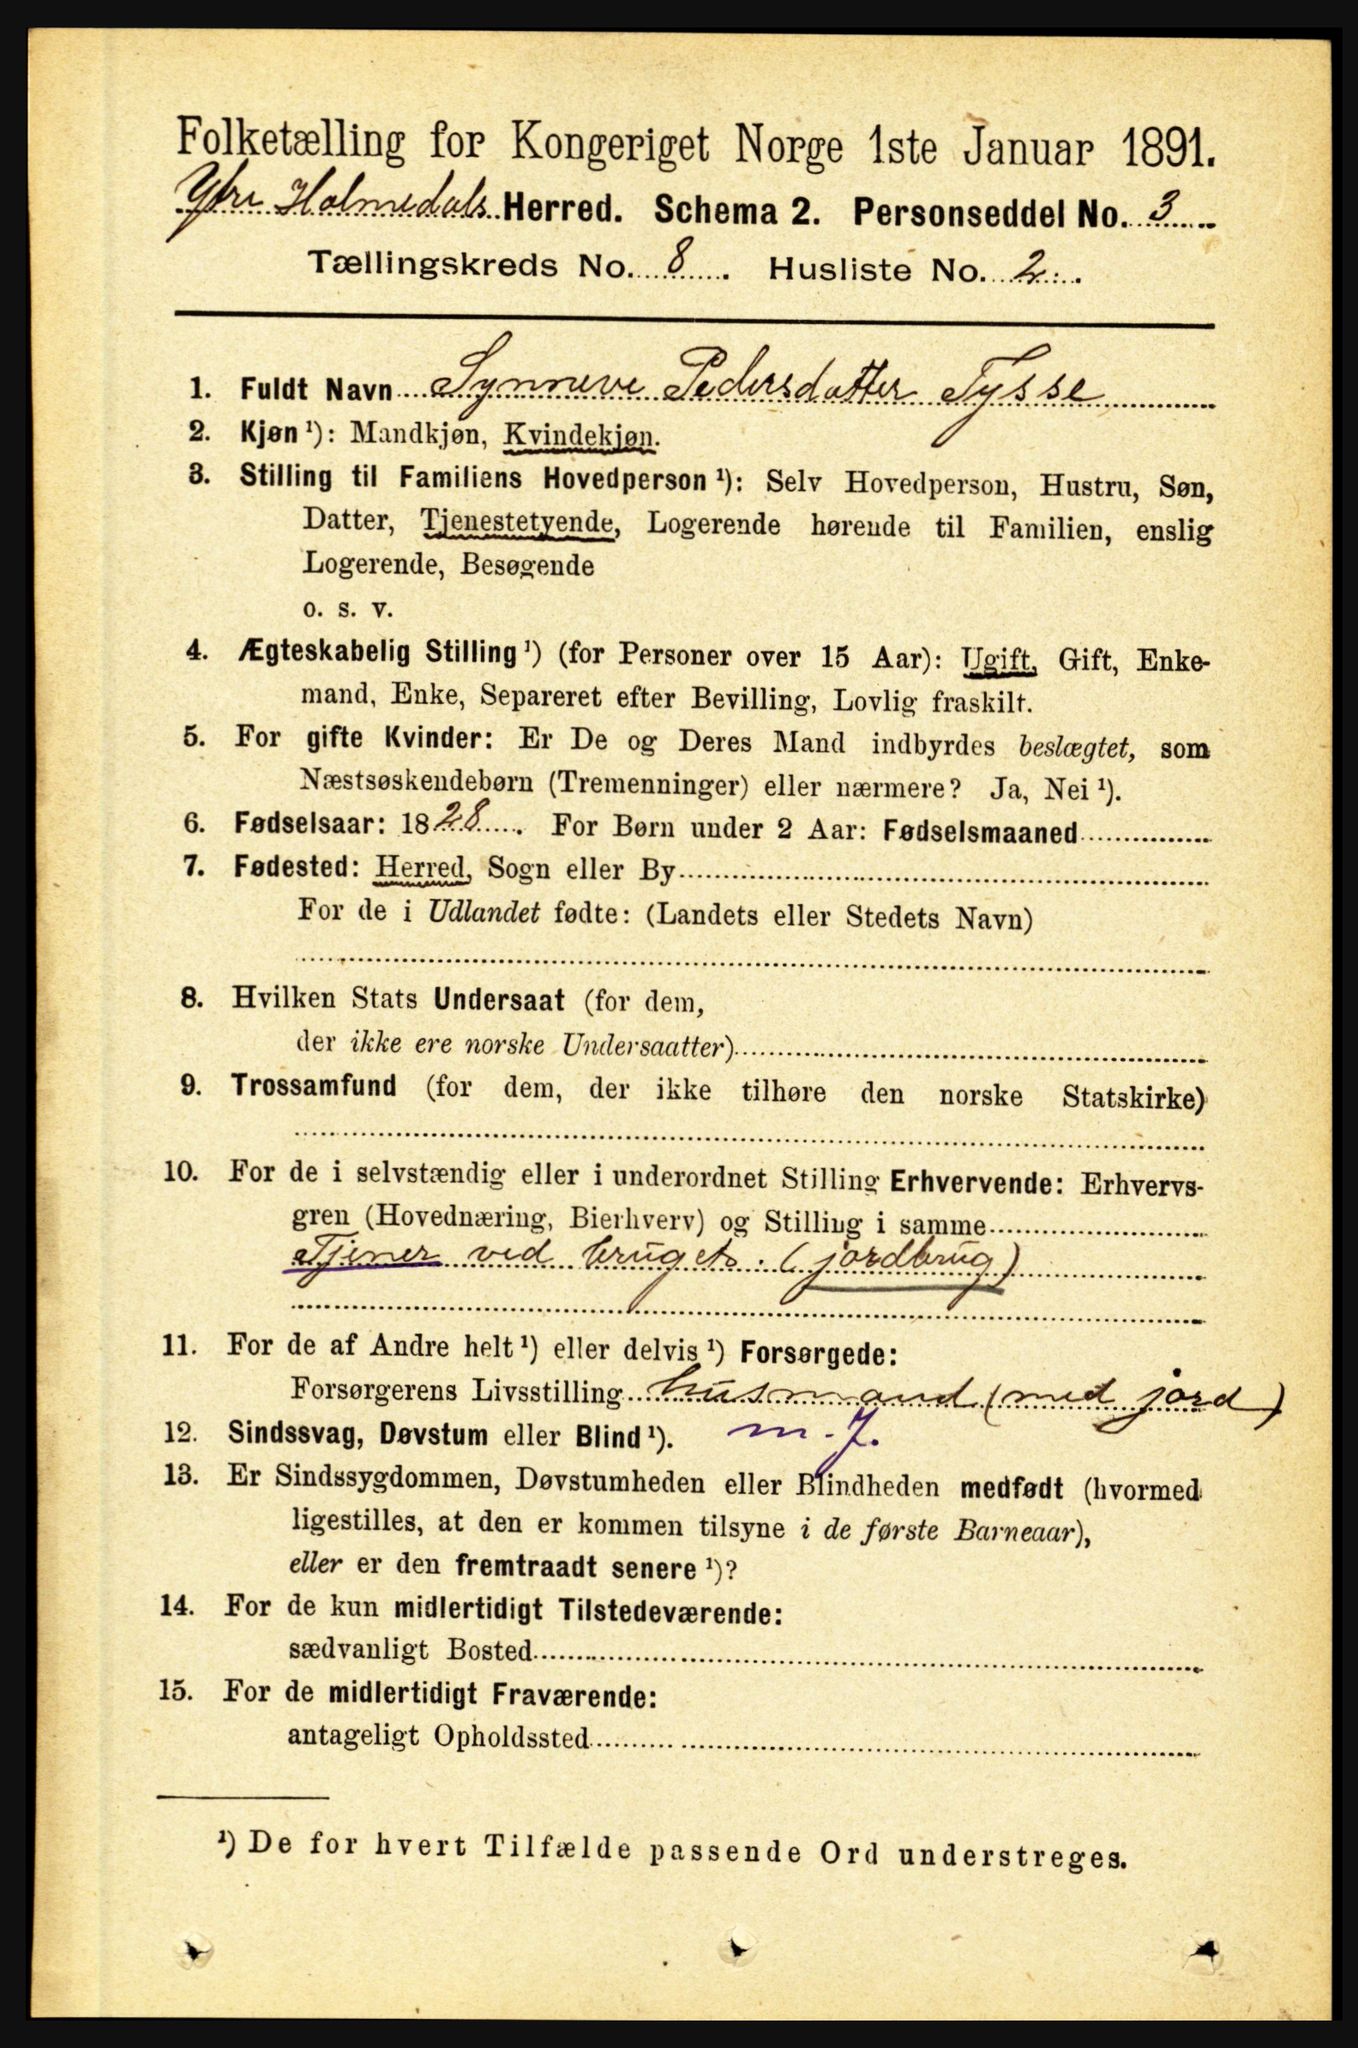 Folketælling for Kongeriget Norge 1ste Januar 1891.
Ytre Holmedals Herred. Schema 2. Personseddel No. 3
Tællingskreds No. 8. Husliste No. 2.
1. Fuldt Navn Synneve Pedersdatter Tysse
2. Kjøn ¹): Mandkjøn, Kvindekjøn.
3. Stilling til Familiens Hovedperson ¹): Selv Hovedperson, Hustru, Søn,
Datter, Tjenestetyende, Logerende hørende til Familien, enslig
Logerende, Besøgende
o. s. v.
4. Ægteskabelig Stilling ¹) (for Personer over 15 Aar): Ugift, Gift, Enke-
mand, Enke, Separeret efter Bevilling, Lovlig fraskilt.
5. For gifte Kvinder: Er De og Deres Mand indbyrdes beslægtet, som
Næstsøskendebørn (Tremenninger) eller nærmere? Ja, Nei ¹).
6. Fødselsaar: 1828. For Børn under 2 Aar: Fødselsmaaned
7. Fødested: Herred, Sogn eller By
For de i Udlandet fødte: (Landets eller Stedets Navn)
8. Hvilken Stats Undersaat (for dem,
der ikke ere norske Undersaatter)
9. Trossamfund (for dem, der ikke tilhøre den norske Statskirke)
10. For de i selvstændig eller i underordnet Stilling Erhvervende: Erhvervs-
gren (Hovednæring, Bierhverv) og Stilling i samme
Tjener ved bruget. (jordbrug)
11. For de af Andre helt ¹) eller delvis ¹) Forsørgede:
Forsørgerens Livsstilling husmand (med jord)
12. Sindssvag, Døvstum eller Blind ¹). m. J.
13. Er Sindssygdommen, Døvstumheden eller Blindheden medfødt (hvormed
ligestilles, at den er kommen tilsyne i de første Barneaar),
eller er den fremtraadt senere ¹)?
14. For de kun midlertidigt Tilstedeværende:
sædvanligt Bosted
15. For de midlertidigt Fraværende:
antageligt Opholdssted
¹) De for hvert Tilfælde passende Ord understreges.